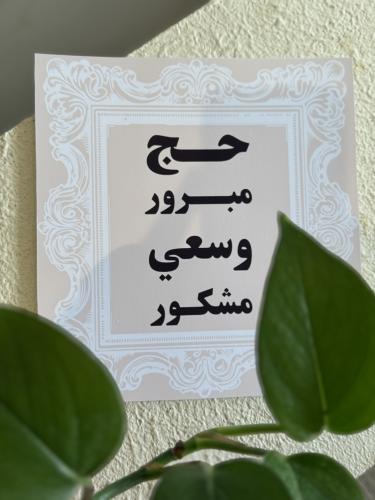 حج
مبرور
وسعي
مشكور